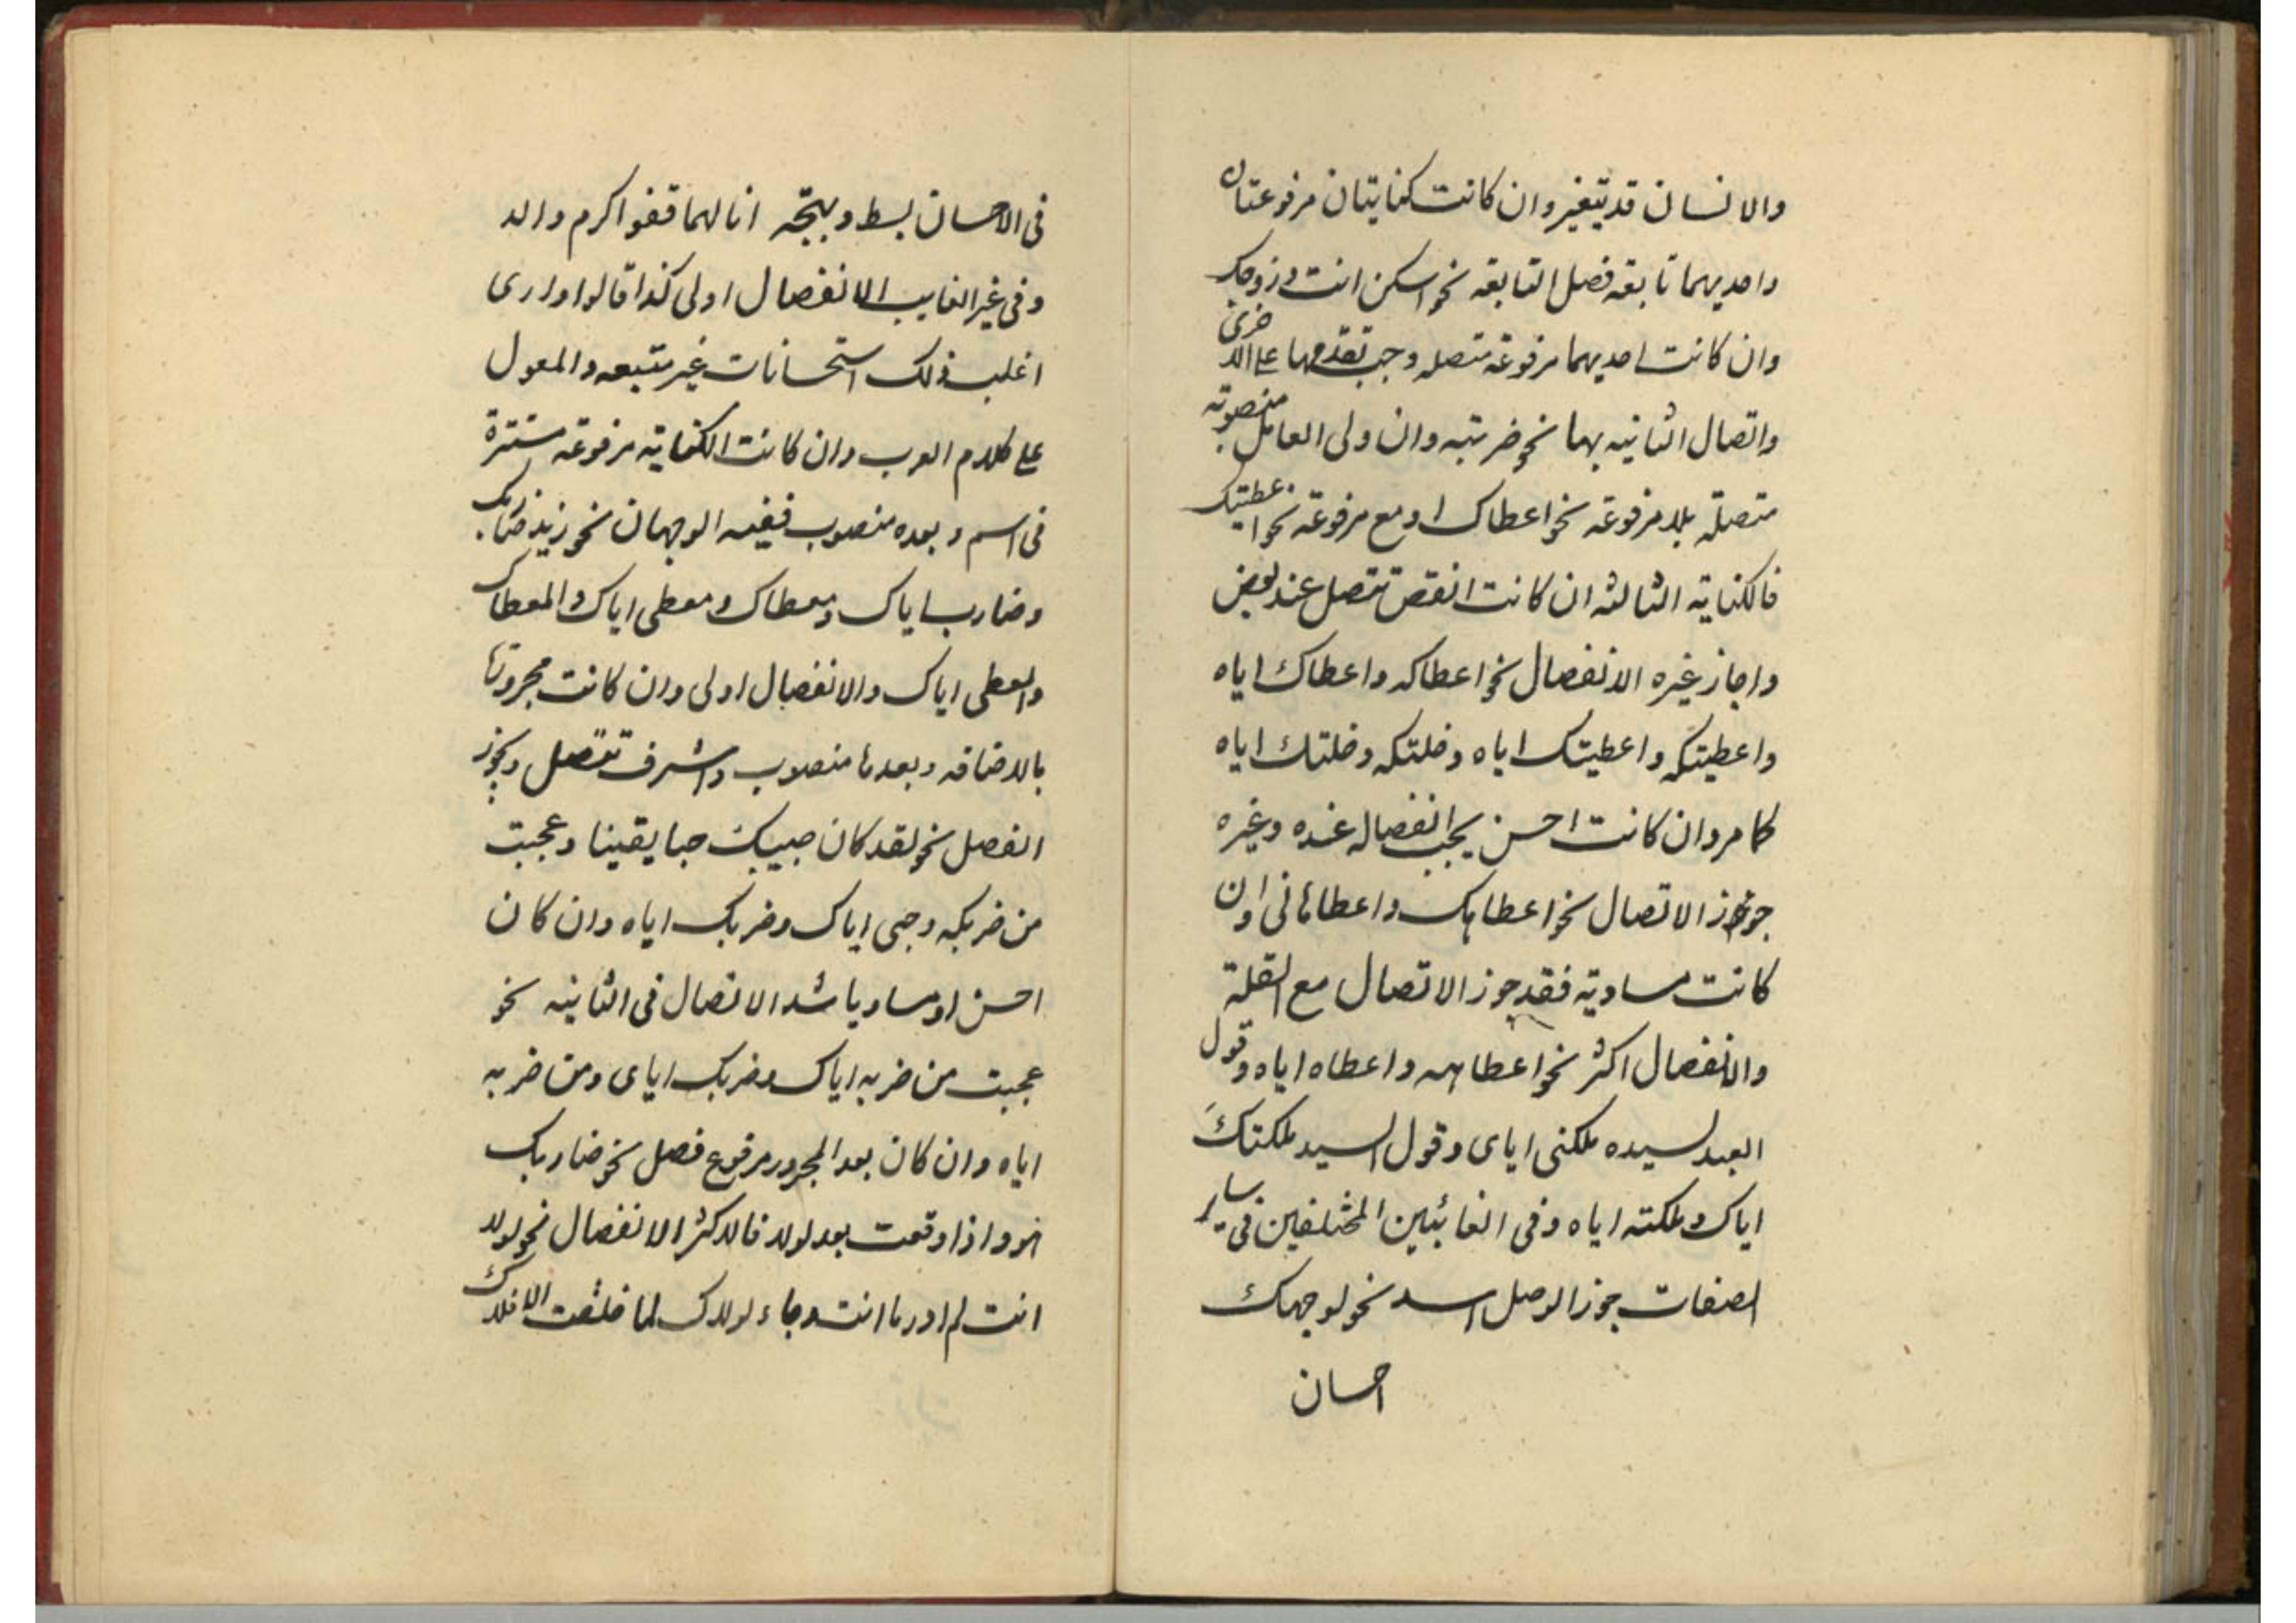 والانسان قد يتغير وان كانت كنايتان مرفوعتان
واحديهما تابعة فصل التابعة نحو اسكن انت وزوجك
وان كانت احديهما مرفوعة متصلة وجب تقدمها على الاخرى
واتصال الثانية بها نحو ضربته وان ولى العامل منصوبة
متصلة بلا مرفوعة نحو اعطاك او مع مرفوعة نحو اعطيتك
فالكناية الثالثة ان كانت انقص تتصل عند بعض
واجاز غيره الانفصال نحو اعطاكه واعطاك اياه
واعطيتكه واعطيتك اياه وخلتكه وخلتك اياه
كما مر وان كانت احسن يجب انفصاله عنده وغيره
جوز الاتصال نحو اعطاهك واعطاهانى وان
كانت مساوية فقد جوز الاتصال مع القلة
والانفصال اكثر نحو اعطاهه واعطاه اياه وقول
العبد لسيده ملكتنى اياى وقول السيد ملكتك
اياك وملكته اياه وفى الغائبين المختلفين فى ساير
الصفات جوز الوصل نحو لوجهك
احسان
فى الاحسان بسط وبهجة انا لهما قفو اكرم والد
وفى غير الغايب الانفصال اولى كذا قالوا وارى
اغلب ذلك استحسانات غير متبعه والمعول
على كلام العرب وان كانت الكناية مرفوعة مستترة
فى اسم وبعده منصوب ففيه الوجهان نحو زيد ضاربك
وضارب اياك ومعطاك ومعطى اياك والمعطاك
والمعطى اياك والانفصال اولى وان كانت مجرورتها
بالاضافه وبعدها منصوب واشرف تتصل ويجوز
الفصل نحو لقد كان حبيك حبا يقينا وعجبت
من ضربكه وحبى اياك وضربك اياه وان كان
احسن او مساويا شد الاتصال فى الثانيه نحو
عجبت من ضربه اياك وضربك اياى ومن ضربه
اياه وان كان بعد المجرور مرفوع فصل نحو ضاربك
هو واذا وقعت بعد لولا فالاكثر الانفصال نحو لولا
انت لم ادر ما انت وجاء لولاك لما خلقت الافلاك